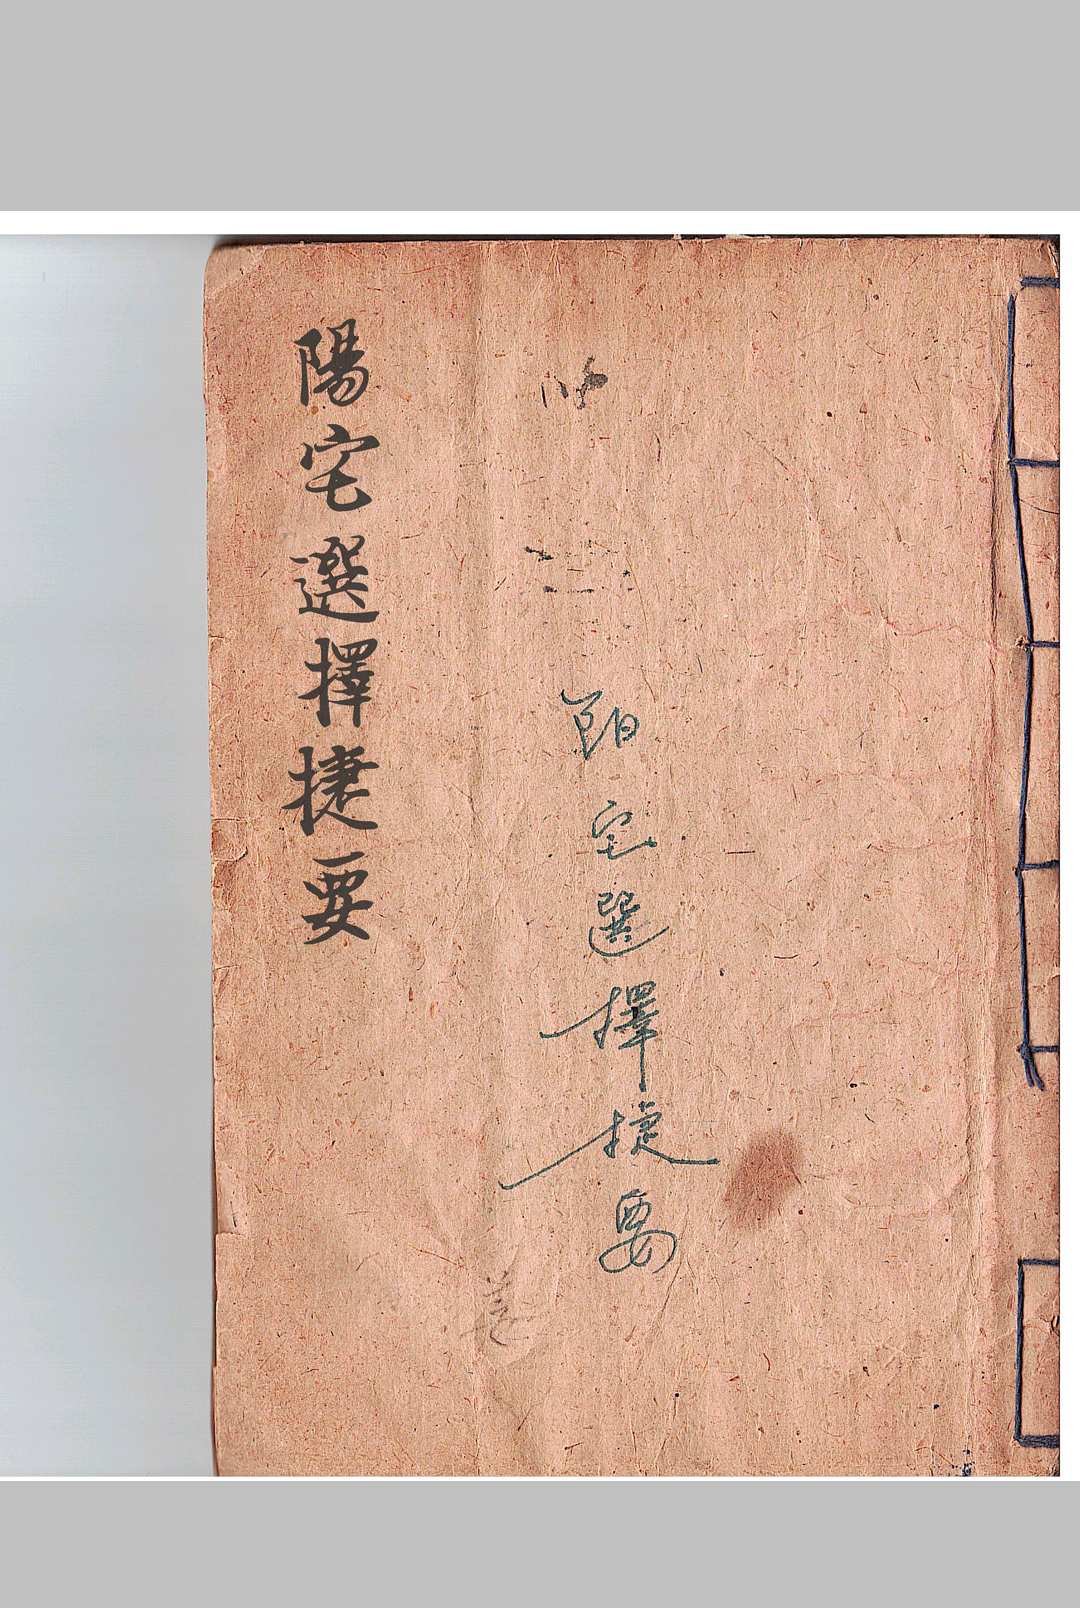 陽宅選擇捷要
阳宅選擇捷要